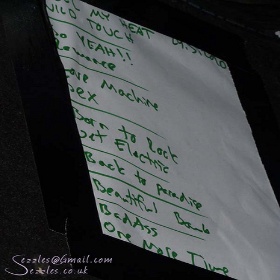 MY HEAT
WILD TOUCH
YEAH!!
Romance
Machine
Sex
Born to Rock
Get Electric
Back to Paradise
Beautiful Bomb
BadAss
One More Time
Sezzles@Gmail.com
Sezzles.co.uk